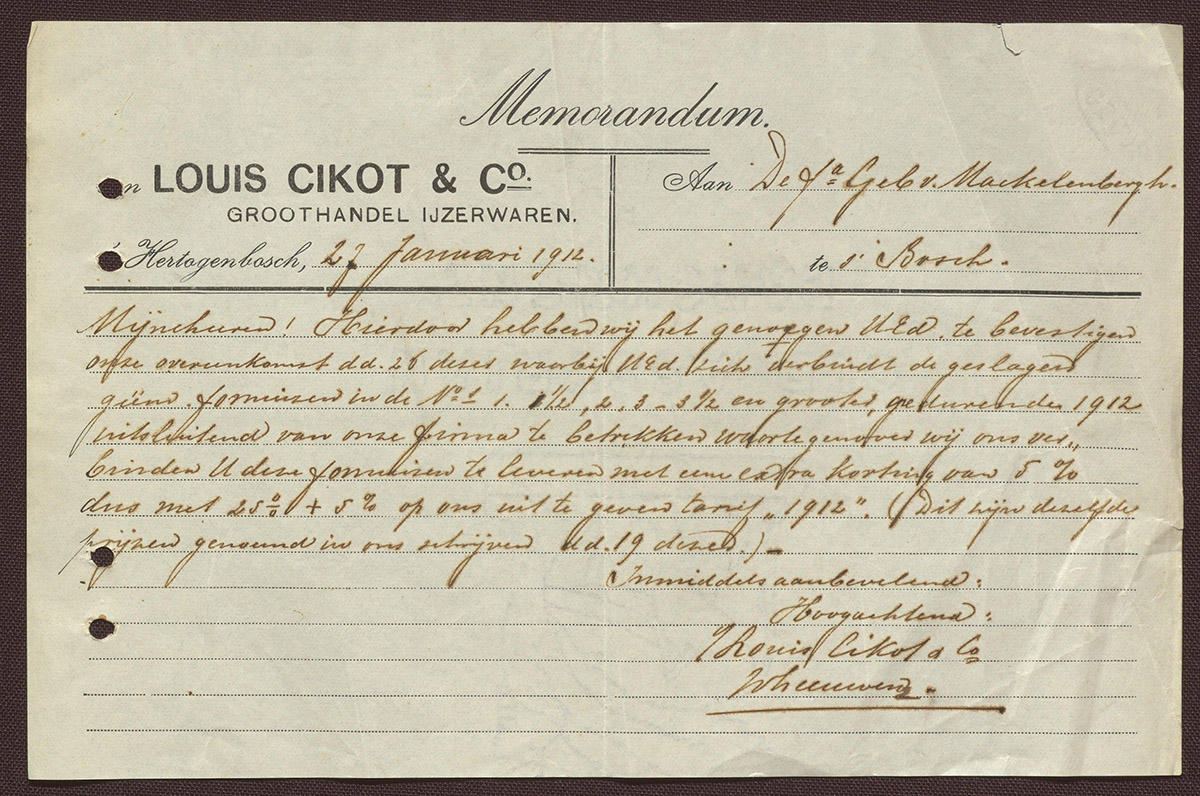 Memorandum.
n LOUIS CIKOT & Co.
GROOTHANDEL IJZERWAREN.
Hertogenbosch, 27 Januari 1912.
Aan De fa Gebr. Mackelenbergh.
te s' Bosch.
Mijneheeren! Hierdoor hebben wij het genoegen UEd. te bevestigen
onze overeenkomst dd. 26 dezes waarbij UEd. zich verbindt de geslagen
fornuizen in de Nos 1. 1½, 2, 3 - 3½ en grooter, gedurende 1912
uitsluitend van onze firma te betrekken waartegenover wij ons ver„
binden U deze fornuizen te leveren met eene extra korting van 5 %
dus met 25% + 5% op ons uit te geven tarief „1912". (Dit zijn dezelfde
prijzen genoemd in ons schrijven dd. 19 dezes.) -
Inmiddels aanbevelend:
Hoogachtend:
Louis Cikot & Co